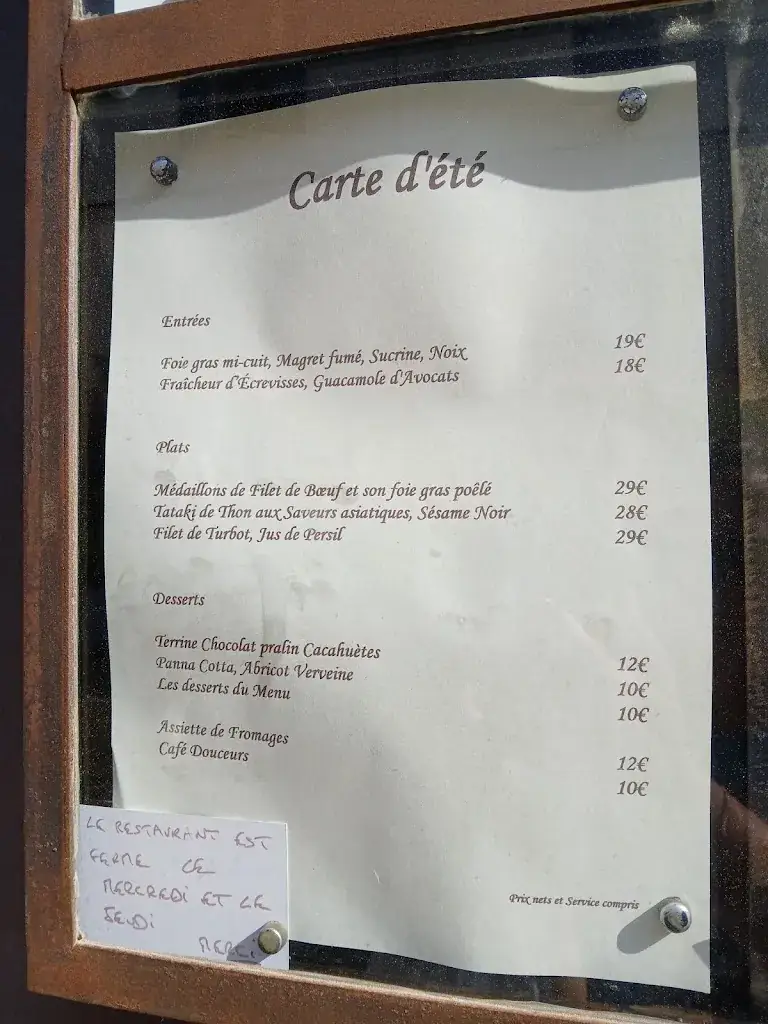 Carte d'été
Entrées
Foie gras mi-cuit, Magret fumé, Sucrine, Noix 19€
Fraîcheur d'Écrevisses, Guacamole d'Avocats 18€
Plats
Médaillons de Filet de Bœuf et son foie gras poêlé 29€
Tataki de Thon aux Saveurs asiatiques, Sésame Noir 28€
Filet de Turbot, Jus de Persil 29€
Desserts
Terrine Chocolat pralin Cacahuètes 12€
Panna Cotta, Abricot Verveine 10€
Les desserts du Menu 10€
Assiette de Fromages 12€
Café Douceurs 10€
Prix nets et Service compris
LE RESTAURANT EST
FERME LE
MERCREDI ET LE
JEUDI
MERCI